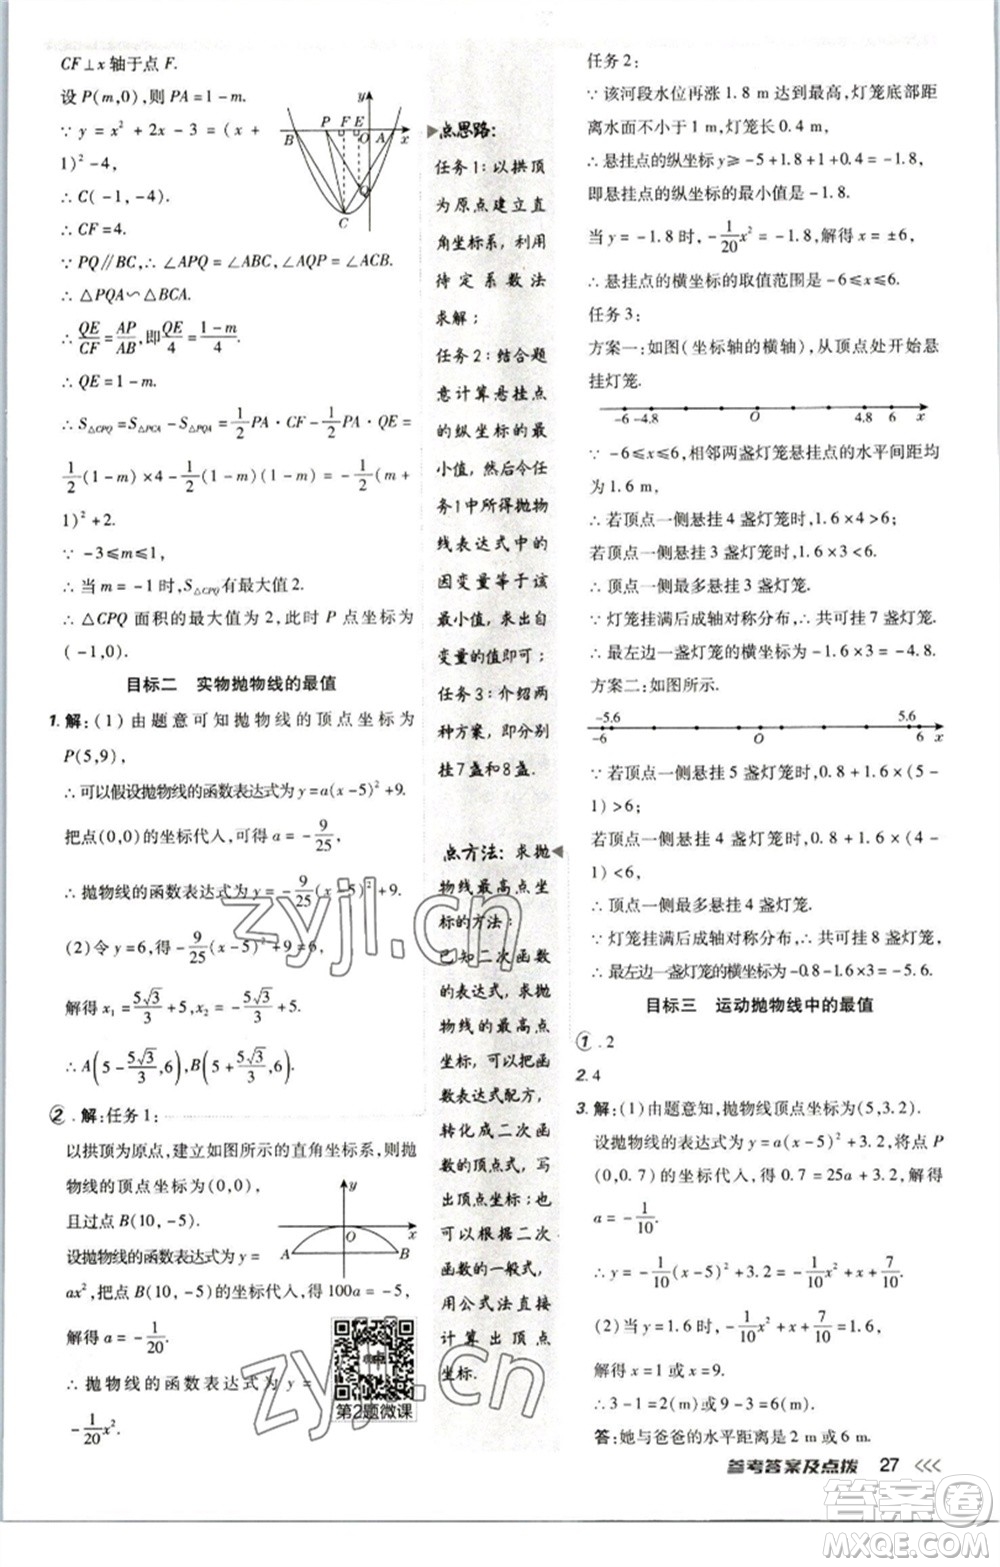 CF⊥x轴于点 F.
设 P(m,0),则 PA=1-m.
∵ y = x² + 2x - 3 = (x +
1)²-4,
∴ C(-1,-4).
∴ CF=4.
∵ PQ∥BC,∴ ∠APQ=∠ABC,∠AQP=∠ACB.
∴ △PQA∽△BCA.
∴ QE/CF = AP/AB,即 QE/4 = (1-m)/4.
∴ QE=1-m.
∴ S△CPQ=S△PCA-S△PQA=1/2 PA·CF-1/2 PA·QE=
1/2(1-m)×4-1/2(1-m)(1-m)=-1/2(m+
1)²+2.
∵ -3≤m≤1,
∴ 当 m=-1时,S△CPQ有最大值2.
∴ △CPQ 面积的最大值为2,此时 P 点坐标为
(-1,0).
y
P F E
B O A x
Q
C
目标二 实物抛物线的最值
1. 解:(1)由题意可知抛物线的顶点坐标为
P(5,9),
∴可以假设抛物线的函数表达式为y=a(x-5)²+9.
把点(0,0)的坐标代入,可得 a=-9/25,
∴ 抛物线的函数表达式为 y=-9/25(x-5)²+9.
(2)令 y=6,得-9/25(x-5)²+9=6,
解得 x₁=5√3/3+5,x₂=-5√3/3+5,
∴ A(5-5√3/3,6),B(5+5√3/3,6).
② . 解:任务1:
以拱顶为原点,建立如图所示的直角坐标系,则抛
物线的顶点坐标为(0,0),
且过点 B(10,-5).
设抛物线的函数表达式为 y=
ax²,
把点 B(10,-5)的坐标代入,得100a=-5,
解得 a=-1/20.
∴ 抛物线的函数表达式为 y=
-1/20 x².
y
O x
A B
第2题微课
点思路:
任务1:以拱顶
为原点建立直
角坐标系,利用
待定系数法
求解;
任务2:结合题
意计算悬挂点
的纵坐标的最
小值,然后令任
务1中所得抛物
线表达式中的
因变量等于该
最小值,求出自
变量的值即可;
任务3:介绍两
种方案,分别
挂7盏和8盏.
点方法:求抛
物线最高点坐
标的方法:
已知二次函数
的表达式,求抛
物线的最高点
坐标,可以把函
数表达式配方,
转化成二次函
数的顶点式,写
出顶点坐标;也
可以根据二次
函数的一般式,
用公式法直接
计算出顶点
坐标.
任务2:
∵ 该河段水位再涨1.8 m达到最高,灯笼底部距
离水面不小于1 m,灯笼长0.4 m,
∴ 悬挂点的纵坐标 y≥-5+1.8+1+0.4=-1.8,
即悬挂点的纵坐标的最小值是-1.8.
当 y=-1.8时,-1/20 x²=-1.8,解得 x=±6,
∴ 悬挂点的横坐标的取值范围是-6≤x≤6.
任务3:
方案一:如图(坐标轴的横轴),从顶点处开始悬
挂灯笼.
-6 -4.8 O 4.8 6 x
∵ -6≤x≤6,相邻两盏灯笼悬挂点的水平间距均
为1.6 m,
∴ 若顶点一侧悬挂4盏灯笼时,1.6×4>6;
若顶点一侧悬挂3盏灯笼时,1.6×3<6.
∴ 顶点一侧最多悬挂3盏灯笼.
∵ 灯笼挂满后成轴对称分布,∴ 共可挂7盏灯笼.
∴ 最左边一盏灯笼的横坐标为-1.6×3=-4.8.
方案二:如图所示.
-5.6 5.6
-6 O 6 x
∵若顶点一侧悬挂5盏灯笼时,0.8+1.6×(5-
1)>6;
若顶点一侧悬挂4盏灯笼时,0.8+1.6×(4-
1)<6,
∴ 顶点一侧最多悬挂4盏灯笼.
∵ 灯笼挂满后成轴对称分布,∴ 共可挂8盏灯笼.
∴ 最左边一盏灯笼的横坐标为-0.8-1.6×3=-5.6.
目标三 运动抛物线中的最值
① . 2
2. 4
3. 解:(1)由题意知,抛物线顶点坐标为(5,3.2).
设抛物线的表达式为 y=a(x-5)²+3.2,将点 P
(0,0.7)的坐标代入,得 0.7=25a+3.2,解得
a=-1/10,
∴ y=-1/10(x-5)²+3.2=-1/10 x²+x+7/10.
(2)当 y=1.6时,-1/10 x²+x+7/10=1.6,
解得 x=1或x=9.
∴ 3-1=2(m)或9-3=6(m).
答:她与爸爸的水平距离是2 m或6 m.
参考答案及点拨 27 <<<
zyjl.cn
zyjl.cn
答案圈
MXQE.COM